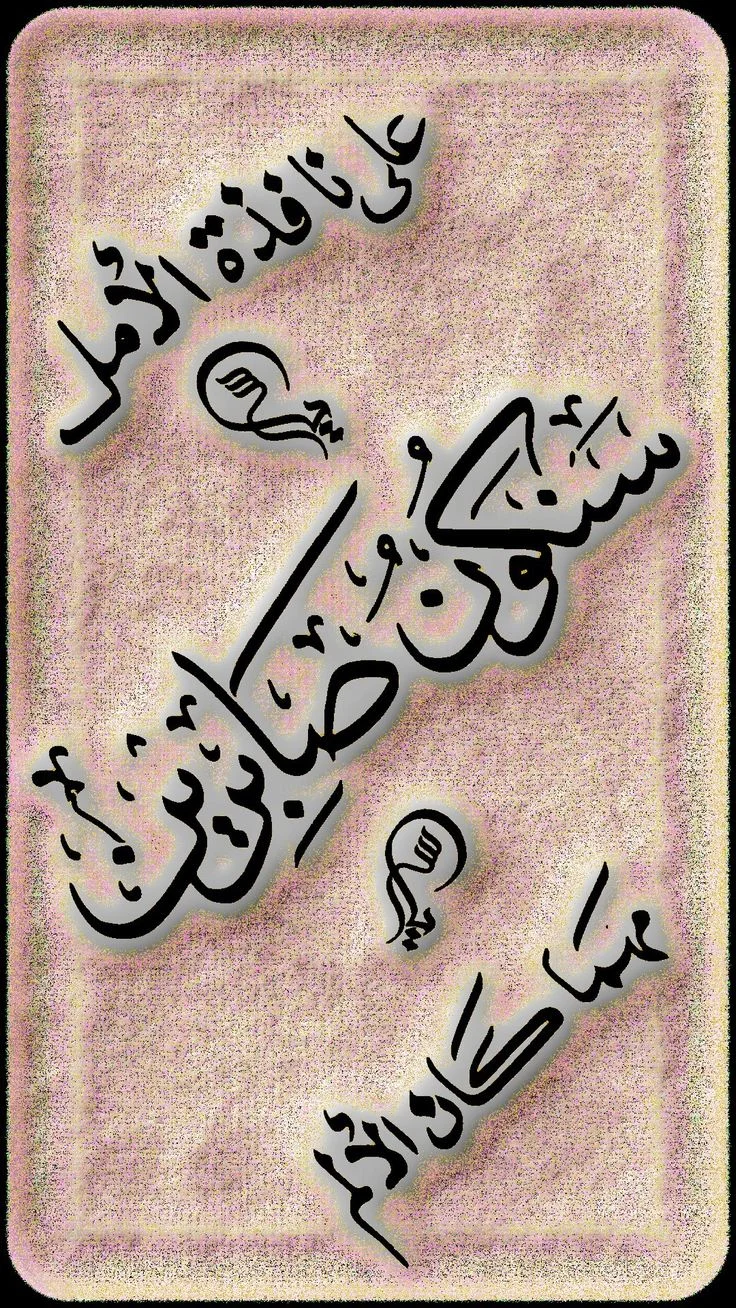 على نافذة الأمل
سَنَكُونُ صَابِرِين
مهما كان الألم